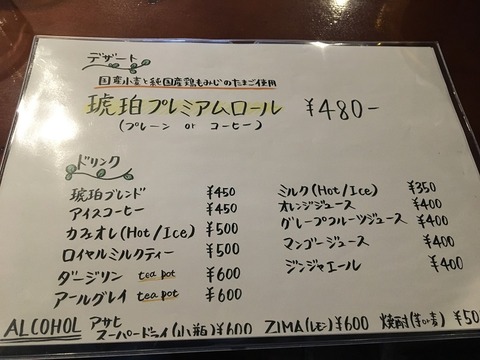 デザート
国産小麦と純国産鶏もみじのたまご使用
琥珀プレミアムロール ¥480-
(プレーン or コーヒー)
ドリンク
琥珀ブレンド ¥450
アイスコーヒー ¥450
カフェオレ(Hot/Ice) ¥500
ロイヤルミルクティー ¥500
ダージリン tea pot ¥600
アールグレイ tea pot ¥600
ミルク(Hot/Ice) ¥350
オレンジジュース ¥400
グレープフルーツジュース ¥400
マンゴージュース ¥400
ジンジャエール ¥400
ALCOHOL アサヒ スーパードライ(小瓶)¥600 ZIMA(レモン)¥600 焼酎(芋or麦) ¥50